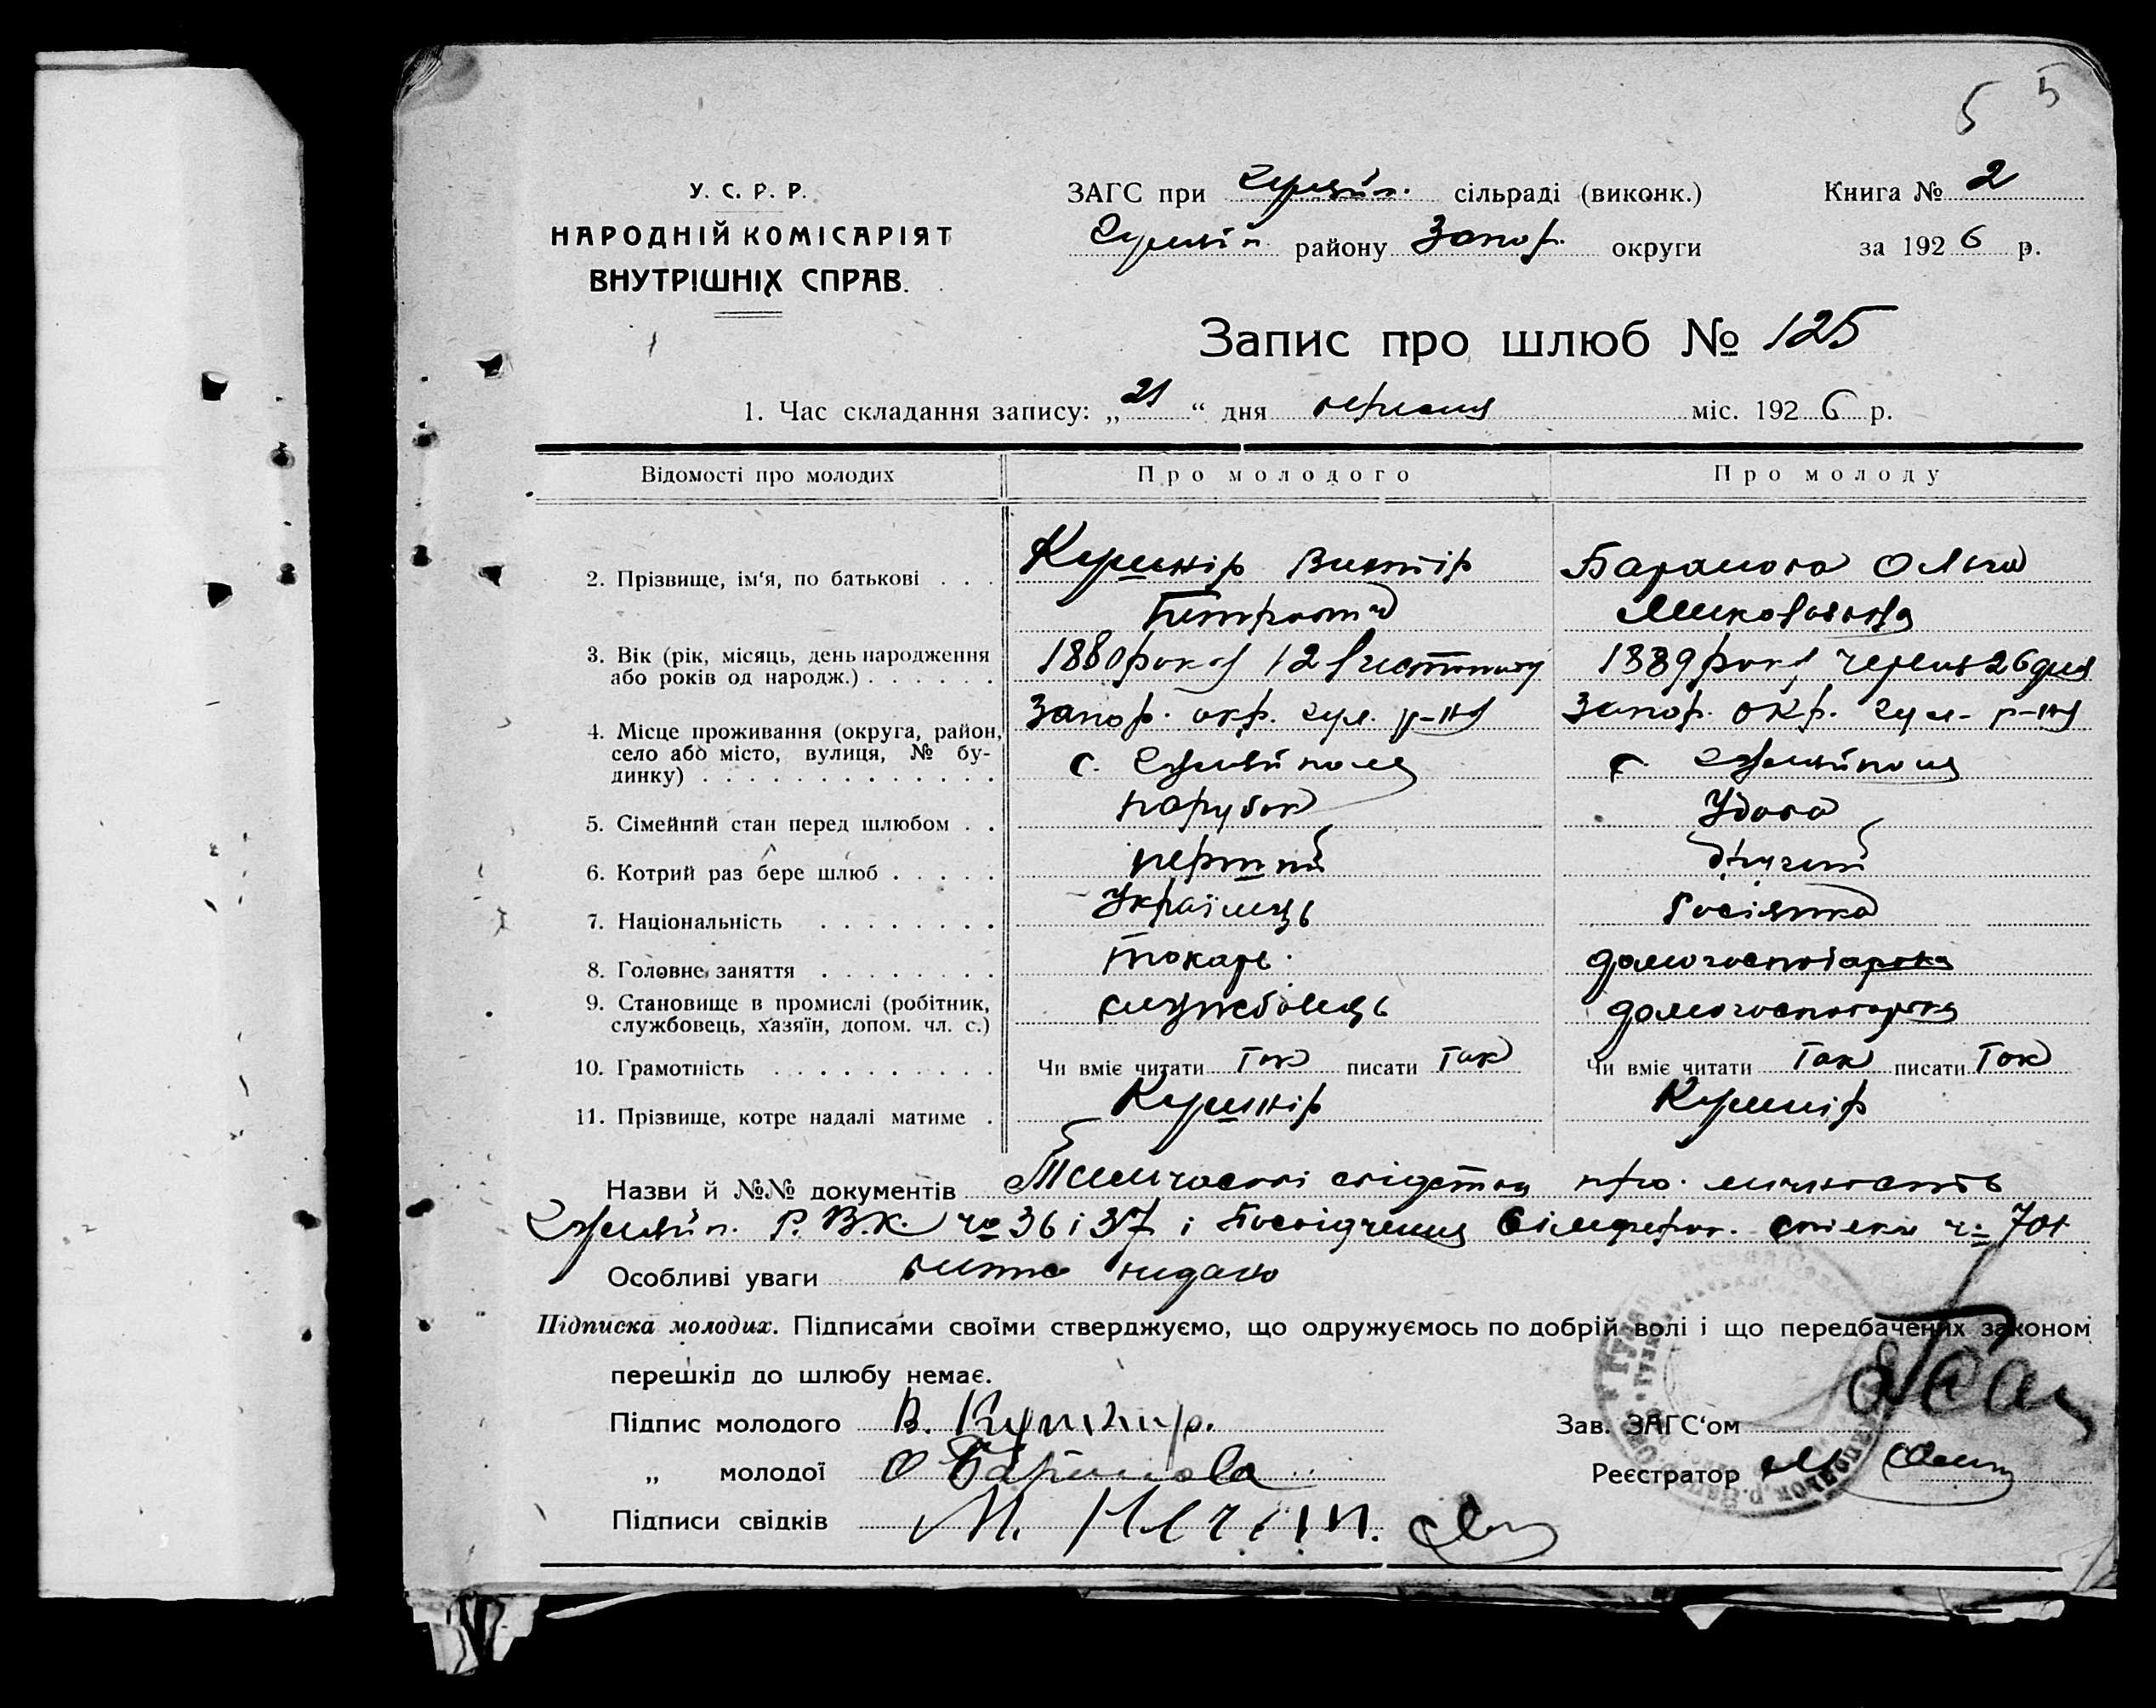 5 5
У. С. Р. Р.
НАРОДНІЙ КОМІСАРІЯТ
ВНУТРІШНІХ СПРАВ.
ЗАГС при Гуляйп. сільраді (виконк.)
Гуляйп. району Запор. округи
Книга № 2
за 1926 р.
Запис про шлюб № 125
1. Час складання запису: „21“ дня серпня міс. 1926 р.
Відомості про молодих Про молодого Про молоду
2. Прізвище, ім'я, по батькові . . . Кушнір Виктір Баранова Ольга
Петрович Миколаївна
3. Вік (рік, місяць, день народження 1880 року 12 листопаду 1889 року червня 26 дня
або років од народж.) . . . . . .
4. Місце проживання (округа, район, Запор. окр. гул. р-ну Запор. окр. гул. р-ну
село або місто, вулиця, № бу- с. Гуляйполя с. Гуляйполя
динку) . . . . . . . . . . . . .
5. Сімейний стан перед шлюбом . . парубок Удова
6. Котрий раз бере шлюб . . . . . перший другий
7. Національність . . . . . . . . Українець Росіянка
8. Головне заняття . . . . . . . . токарь. домогосподарка
9. Становище в промислі (робітник, службовець домогосподарка
службовець, хазяїн, допом. чл. с.)
10. Грамотність . . . . . . . . . . Чи вміє читати так писати так Чи вміє читати так писати так
11. Прізвище, котре надалі матиме . Кушнір Кушнір
Назви й №№ документів Тимчасові свідетва про личность
Гуляйп. Р.В.К. 36 і 37 і Посвідчення Сімфероп. 701
Особливі уваги видано
Підписка молодих. Підписами своїми стверджуємо, що одружуємось по добрій волі і що передбачених законом
перешкід до шлюбу немає.
Підпис молодого В. Кушнир.
„ молодої О Баранова
Підписи свідків М.
Зав. ЗАГС'ом
Реєстратор